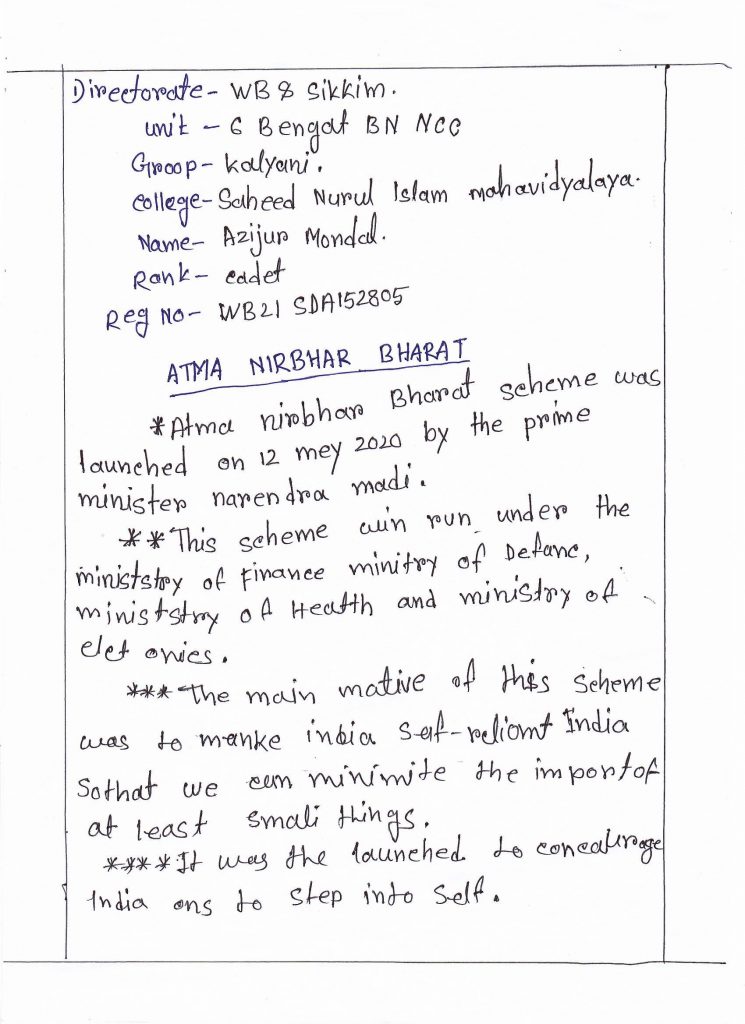 Directorate- WB & Sikkim.
unit - 6 Bengal BN NCC
Groop- Kalyani.
college- Saheed Nurul Islam mahavidyalaya.
Name- Azijur Mondal.
Rank- cadet
Reg No- WB21 SDA152805
ATMA NIRBHAR BHARAT
*Atma nirbhar Bharat scheme was
launched on 12 mey 2020 by the prime
minister narendra madi.
**This scheme win run under the
ministstry of Finance minitry of Defanc,
ministstry of Health and ministry of
elet onies.
***The main mative of this scheme
was to manke india self-reliomt India
Sothat we can minimite the importof
at least smali things.
****It was the launched to concaturage
India ons to step into self.